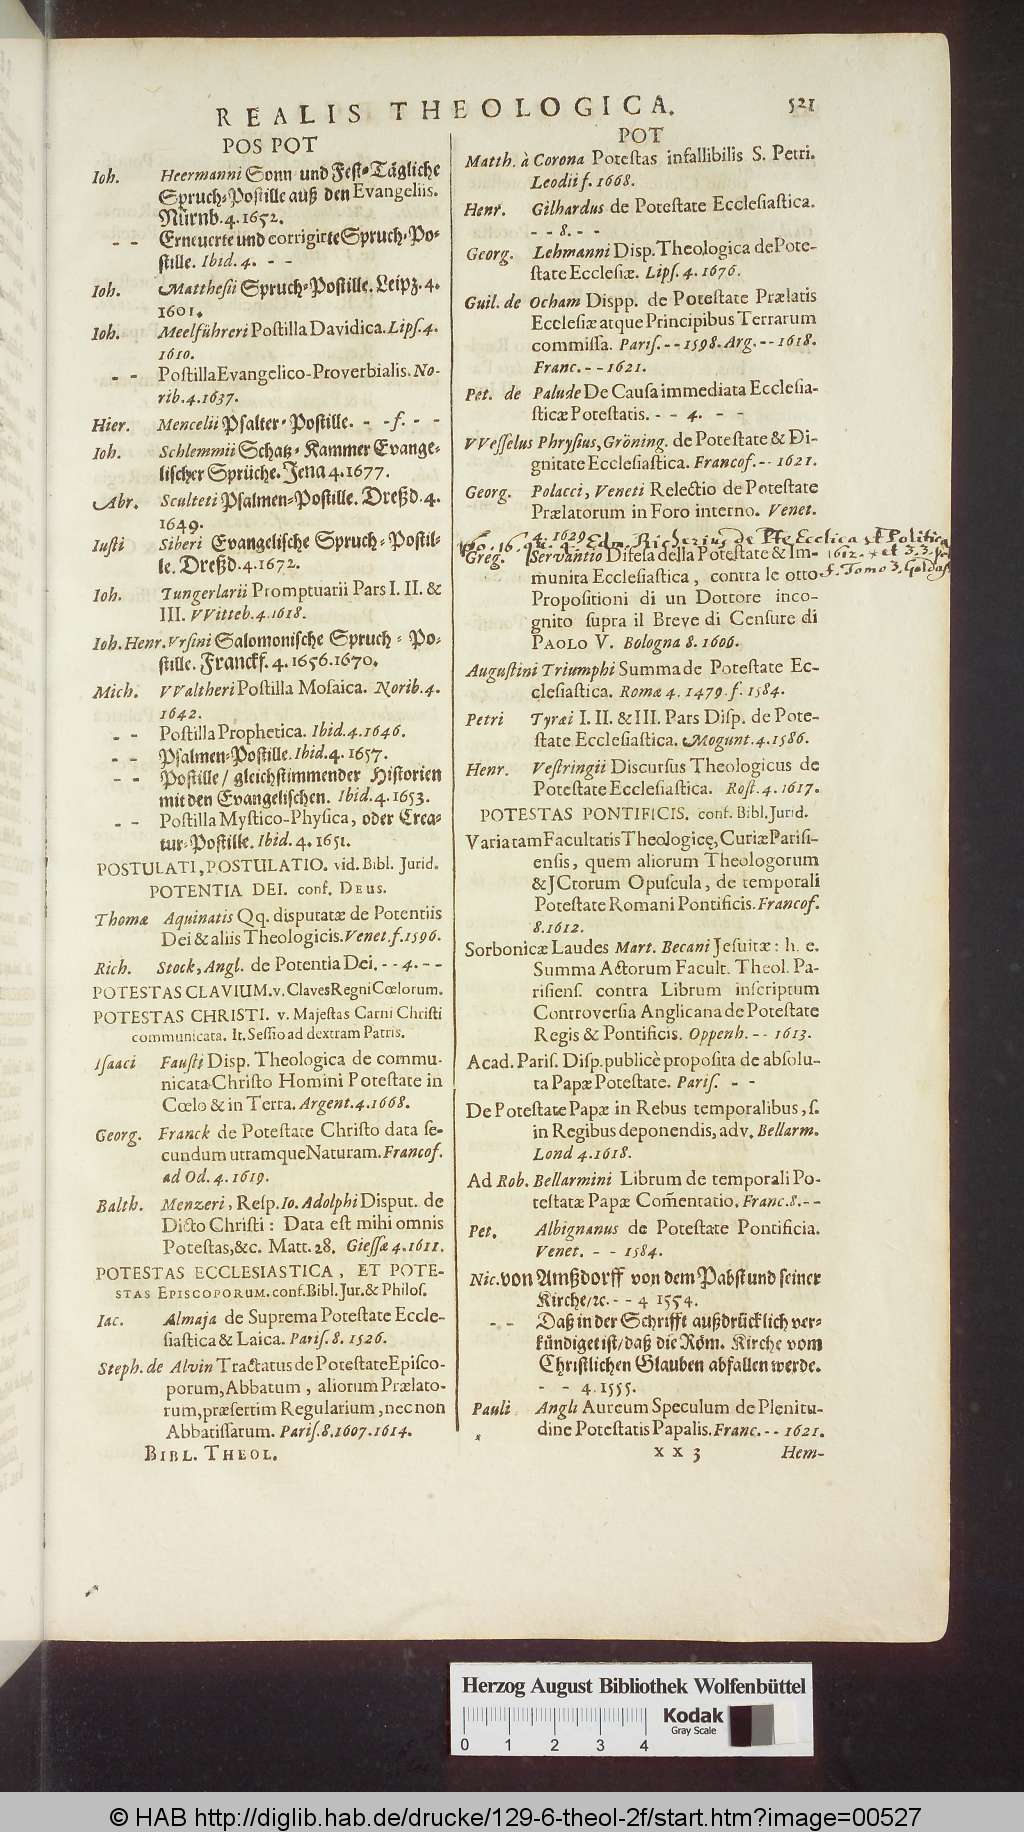 REALIS THEOLOGICA.
521
POS POT
Ioh. Heermanni Sonn und Fest-Tägliche
Spruch-Postille auß den Evangeliis.
Nürnb. 4. 1652.
- - Erneuerte und corrigirte Spruch-Po-
stille. Ibid. 4. - -
Ioh. Matthesii Spruch-Postille. Leipz. 4.
1601.
Ioh. Meelführeri Postilla Davidica. Lips. 4.
1610.
- - Postilla Evangelico-Proverbialis. No-
rib. 4. 1637.
Hier. Mencelii Psalter-Postille. - - f. - -
Ioh. Schlemmii Schatz-Kammer Evange-
lischer Sprüche. Jena 4. 1677.
Abr. Sculteti Psalmen-Postille. Dreßd. 4.
1649.
Iusti Siberi Evangelische Spruch-Postil-
le. Dreßd. 4. 1672.
Ioh. Tungerlarii Promptuarii Pars I. II. &
III. VVitteb. 4. 1618.
Ioh. Henr. Vrsini Salomonische Spruch-Po-
stille. Franckf. 4. 1656. 1670.
Mich. VValtheri Postilla Mosaica. Norib. 4.
1642.
- - Postilla Prophetica. Ibid. 4. 1646.
- - Psalmen-Postille. Ibid. 4. 1657.
- - Postille / gleichstimmender Historien
mit den Evangelischen. Ibid. 4. 1653.
- - Postilla Mystico-Physica, oder Crea-
tur-Postille. Ibid. 4. 1651.
POSTULATI, POSTULATIO. vid. Bibl. Jurid.
POTENTIA DEI. conf. DEUS.
Thomæ Aquinatis Qq. disputatæ de Potentiis
Dei & aliis Theologicis. Venet. f. 1596.
Rich. Stock, Angl. de Potentia Dei. - - 4. - -
POTESTAS CLAVIUM. v. Claves Regni Cœlorum.
POTESTAS CHRISTI. v. Majestas Carni Christi
communicata. It. Sessio ad dextram Patris.
Isaaci Fausti Disp. Theologica de commu-
nicata Christo Homini Potestate in
Cœlo & in Terra. Argent. 4. 1668.
Georg. Franck de Potestate Christo data se-
cundum utramque Naturam. Francof.
ad Od. 4. 1619.
Balth. Menzeri, Resp. Io. Adolphi Disput. de
Dicto Christi: Data est mihi omnis
Potestas, &c. Matt. 28. Giessæ 4. 1611.
POTESTAS ECCLESIASTICA, ET POTE-
STAS EPISCOPORUM. conf. Bibl. Jur. & Philos.
Iac. Almaja de Suprema Potestate Eccle-
siastica & Laica. Paris. 8. 1526.
Steph. de Alvin Tractatus de Potestate Episco-
porum, Abbatum, aliorum Prælato-
rum, præsertim Regularium, nec non
Abbatissarum. Paris. 8. 1607. 1614.
BIBL. THEOL.
POT
Matth. à Corona Potestas infallibilis S. Petri.
Leodii f. 1668.
Henr. Gilhardus de Potestate Ecclesiastica.
- - 8. - -
Georg. Lehmanni Disp. Theologica de Pote-
state Ecclesiæ. Lips. 4. 1676.
Guil. de Ocham Dispp. de Potestate Prælatis
Ecclesiæ atque Principibus Terrarum
commissa. Paris. - - 1598. Arg. - - 1618.
Franc. - - 1621.
Pet. de Palude De Causa immediata Ecclesia-
sticæ Potestatis. - - 4. - -
VVesselus Phrysius, Gröning. de Potestate & Di-
gnitate Ecclesiastica. Francof. - - 1621.
Georg. Polacci, Veneti Relectio de Potestate
Prælatorum in Foro interno. Venet.
4. 1629.
Edm. Richerius de Pte Ecclica et Politica
1612. * et 3. 3.
f. Tomo 3. Goldast
Greg. Servantio Difesa della Potestate & Im-
munita Ecclesiastica, contra le otto
Propositioni di un Dottore inco-
gnito supra il Breve di Censure di
PAOLO V. Bologna 8. 1606.
Augustini Triumphi Summa de Potestate Ec-
clesiastica. Romæ 4. 1479. f. 1584.
Petri Tyræi I. II. & III. Pars Disp. de Pote-
state Ecclesiastica. Mogunt. 4. 1586.
Henr. Vestringii Discursus Theologicus de
Potestate Ecclesiastica. Rost. 4. 1617.
POTESTAS PONTIFICIS. conf. Bibl. Jurid.
Variatam Facultatis Theologicę, Curiæ Parisi-
ensis, quem aliorum Theologorum
& JCtorum Opuscula, de temporali
Potestate Romani Pontificis. Francof.
8. 1612.
Sorbonicæ Laudes Mart. Becani Jesuitæ: h. e.
Summa Actorum Facult. Theol. Pa-
risiens. contra Librum inscriptum
Controversia Anglicana de Potestate
Regis & Pontificis. Oppenh. - - 1613.
Acad. Paris. Disp. publicè proposita de absolu-
ta Papæ Potestate. Paris. - -
De Potestate Papæ in Rebus temporalibus, s.
in Regibus deponendis, adv. Bellarm.
Lond 4. 1618.
Ad Rob. Bellarmini Librum de temporali Po-
testatæ Papæ Com̃entatio. Franc. 8. - -
Pet. Albignanus de Potestate Pontificia.
Venet. - - 1584.
Nic. von Amßdorff von dem Pabst und seiner
Kirche / ꝛc. - - 4 1554.
- - Daß in der Schrifft außdrücklich ver-
kündiget ist / daß die Röm. Kirche vom
Christlichen Glauben abfallen werde.
- - 4. 1555.
Pauli Angli Aureum Speculum de Plenitu-
dine Potestatis Papalis. Franc. - - 1621.
XX 3
Hem-
Herzog August Bibliothek Wolfenbüttel
Kodak
Gray Scale
0 1 2 3 4
© HAB http://diglib.hab.de/drucke/129-6-theol-2f/start.htm?image=00527